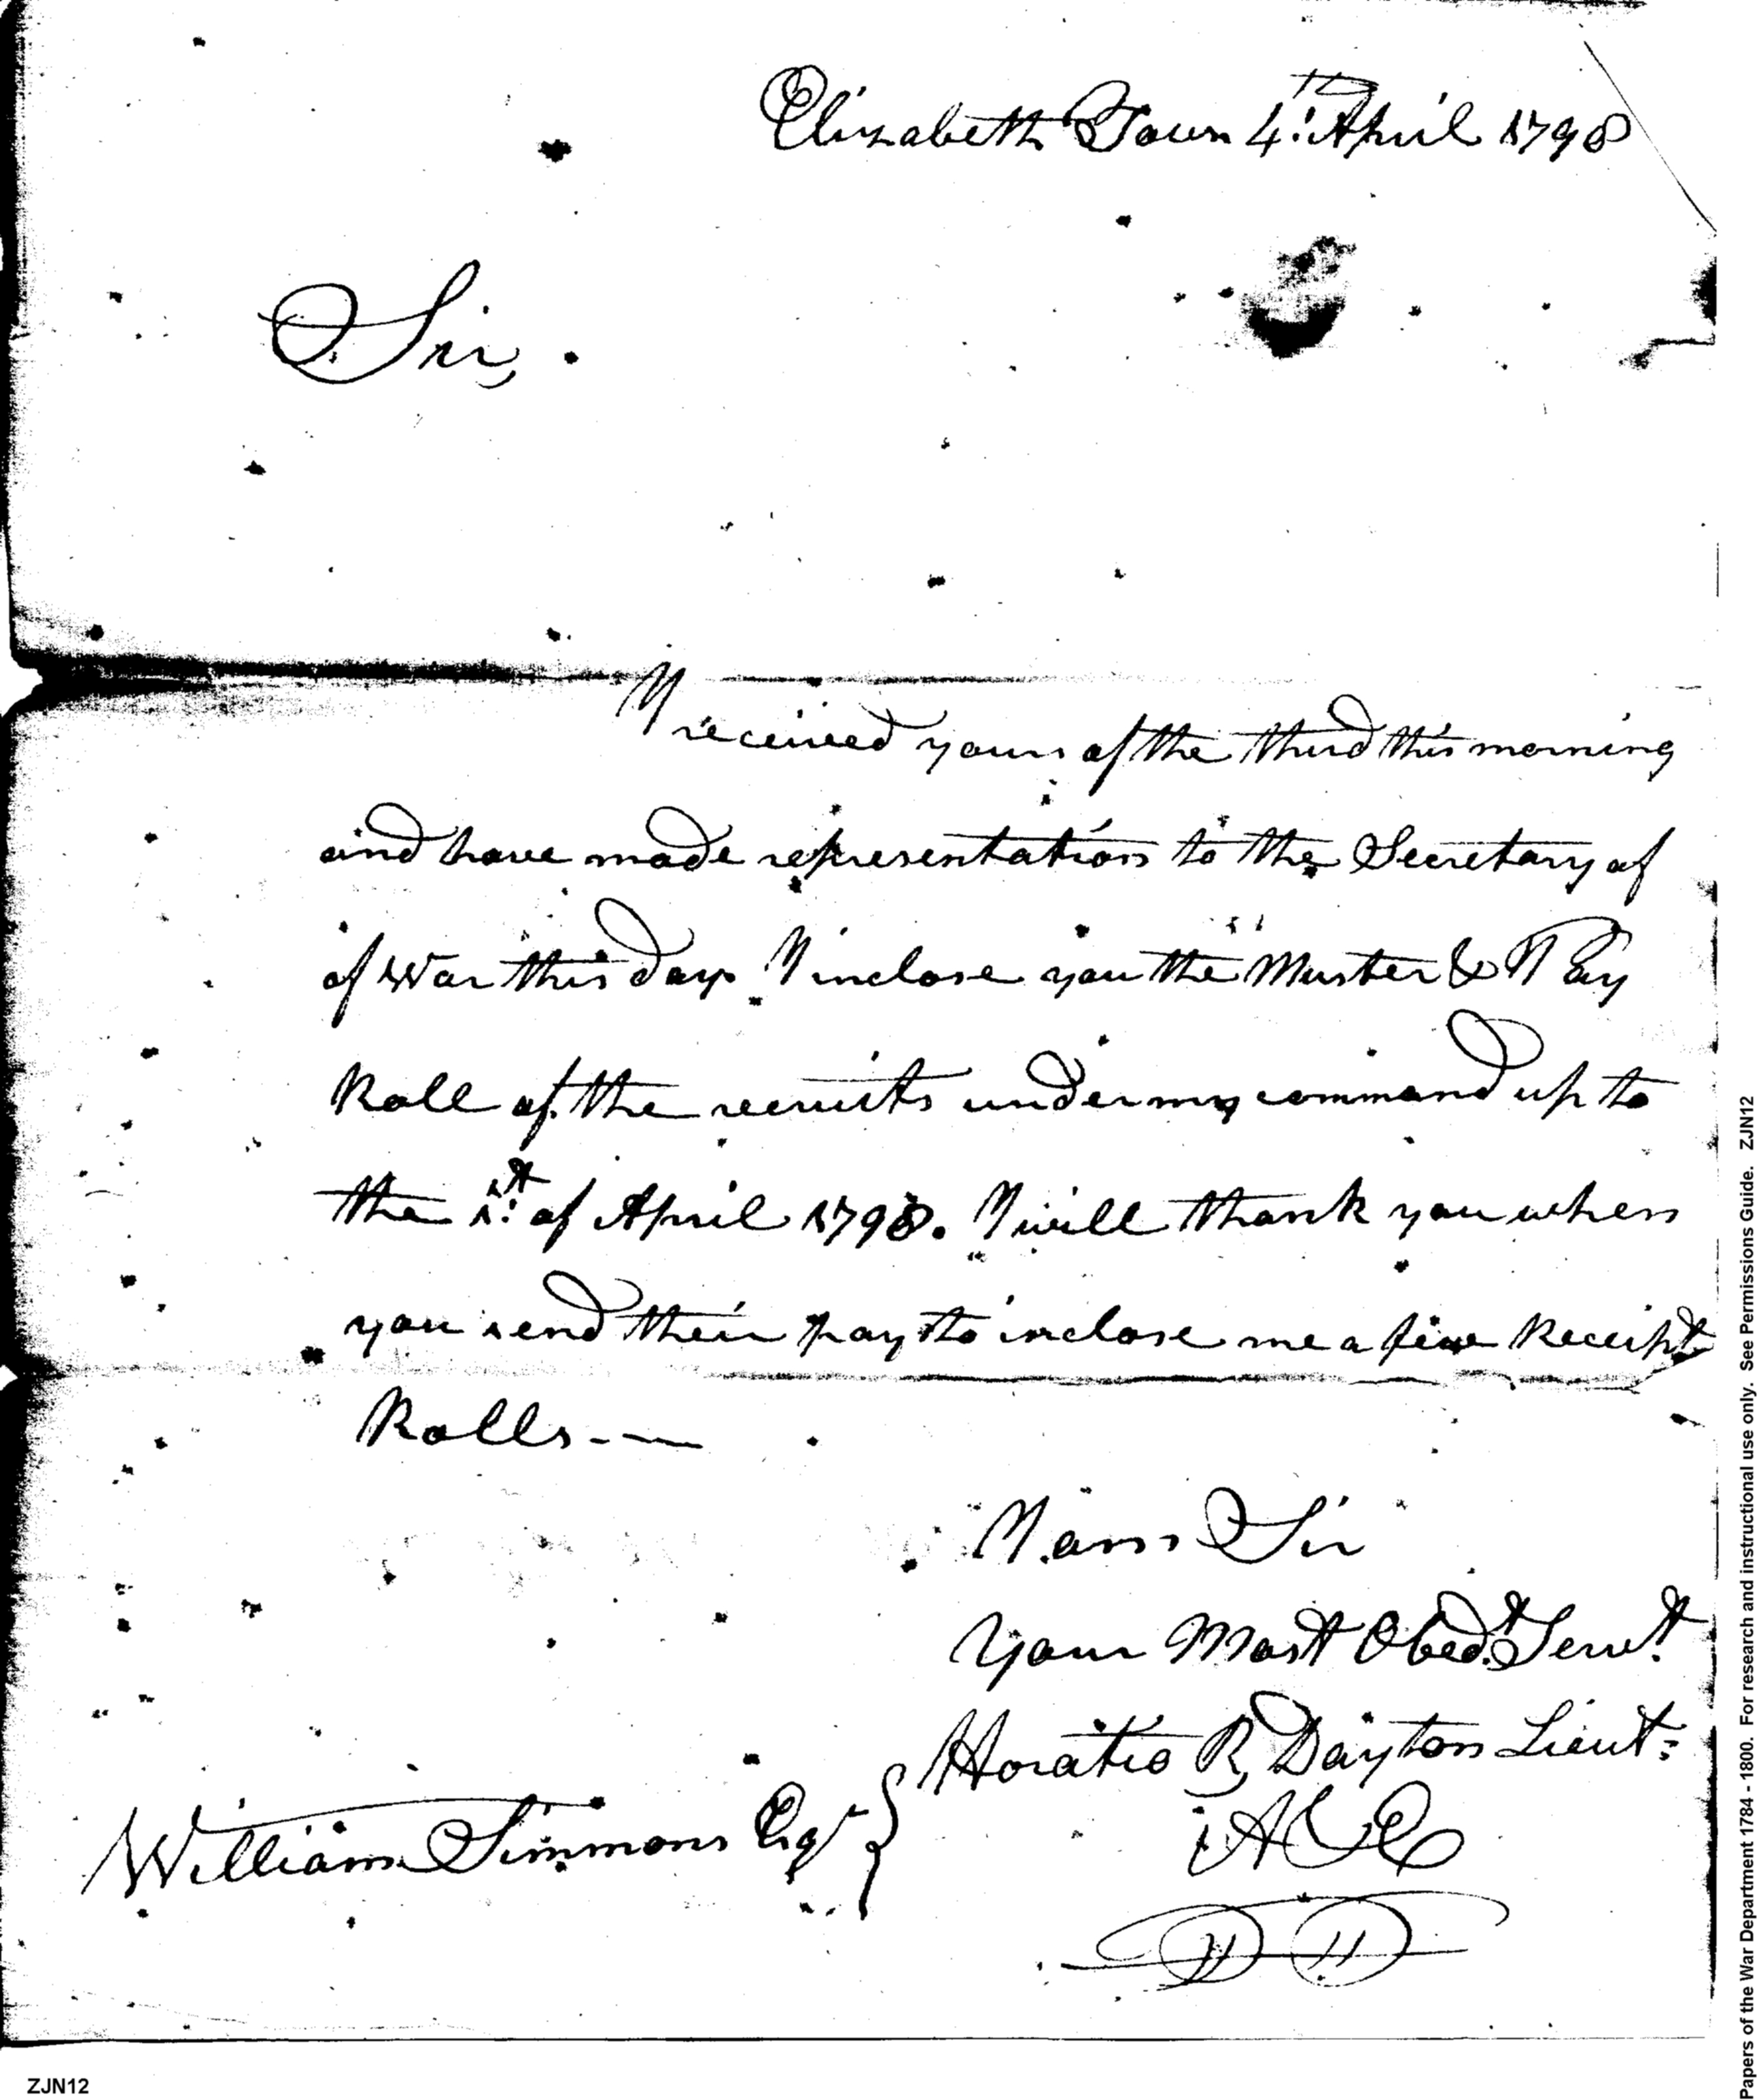 Elizabeth Town 4th. April 1798
Sir,
I received yours of the third this morning
and have made representation to the Secretary of
of War this day. I inclose you the Muster & Pay
Roll of the recruits under my command up to
the 1st. of April 1798. I will thank you when
you send their pay to inclose me a few Receipt
Rolls
I am Sir
Your Most Obedt. Servt.
Horatio R Dayton Lieut.
William Simmons Esqr
Papers of the War Department 1784 - 1800. For research and instructional use only. See Permissions Guide. ZJN12
ZJN12